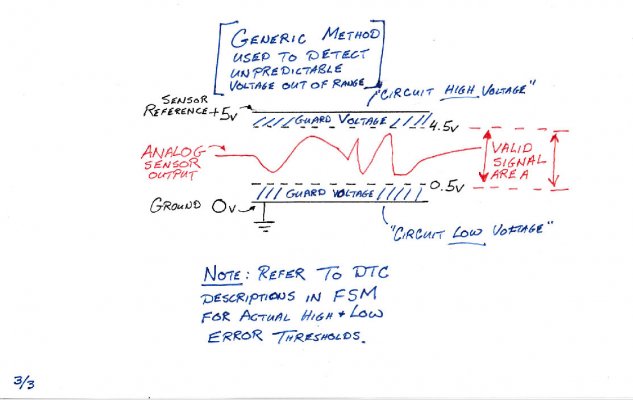 GENERIC METHOD
USED TO DETECT
UNPREDICTABLE
VOLTAGE OUT OF RANGE
"CIRCUIT HIGH VOLTAGE"
SENSOR
REFERENCE +5V
GUARD VOLTAGE
4.5V
ANALOG
SENSOR
OUTPUT
VALID
SIGNAL
AREA
GUARD VOLTAGE
0.5V
GROUND 0V
"CIRCUIT LOW VOLTAGE"
NOTE: REFER TO DTC
DESCRIPTIONS IN FSM
FOR ACTUAL HIGH + LOW
ERROR THRESHOLDS.
3/3